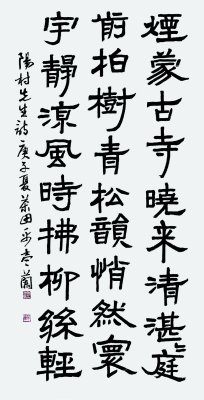 煙蒙古寺曉来清湛庭
前柏樹青松韻悄然寰
宇靜涼風時拂柳絲輕
陽村先生詩庚子夏